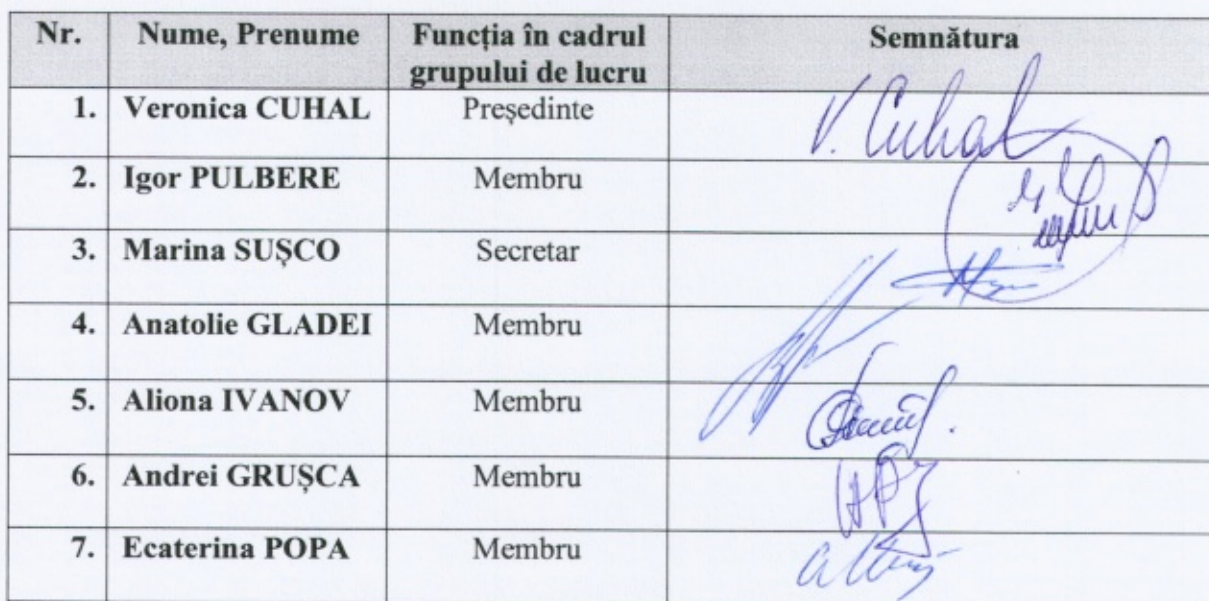 Nr. Nume, Prenume Funcția în cadrul grupului de lucru Semnătura
1. Veronica CUHAL Președinte V. Cuhal
2. Igor PULBERE Membru
3. Marina SUȘCO Secretar
4. Anatolie GLADEI Membru
5. Aliona IVANOV Membru
6. Andrei GRUȘCA Membru
7. Ecaterina POPA Membru